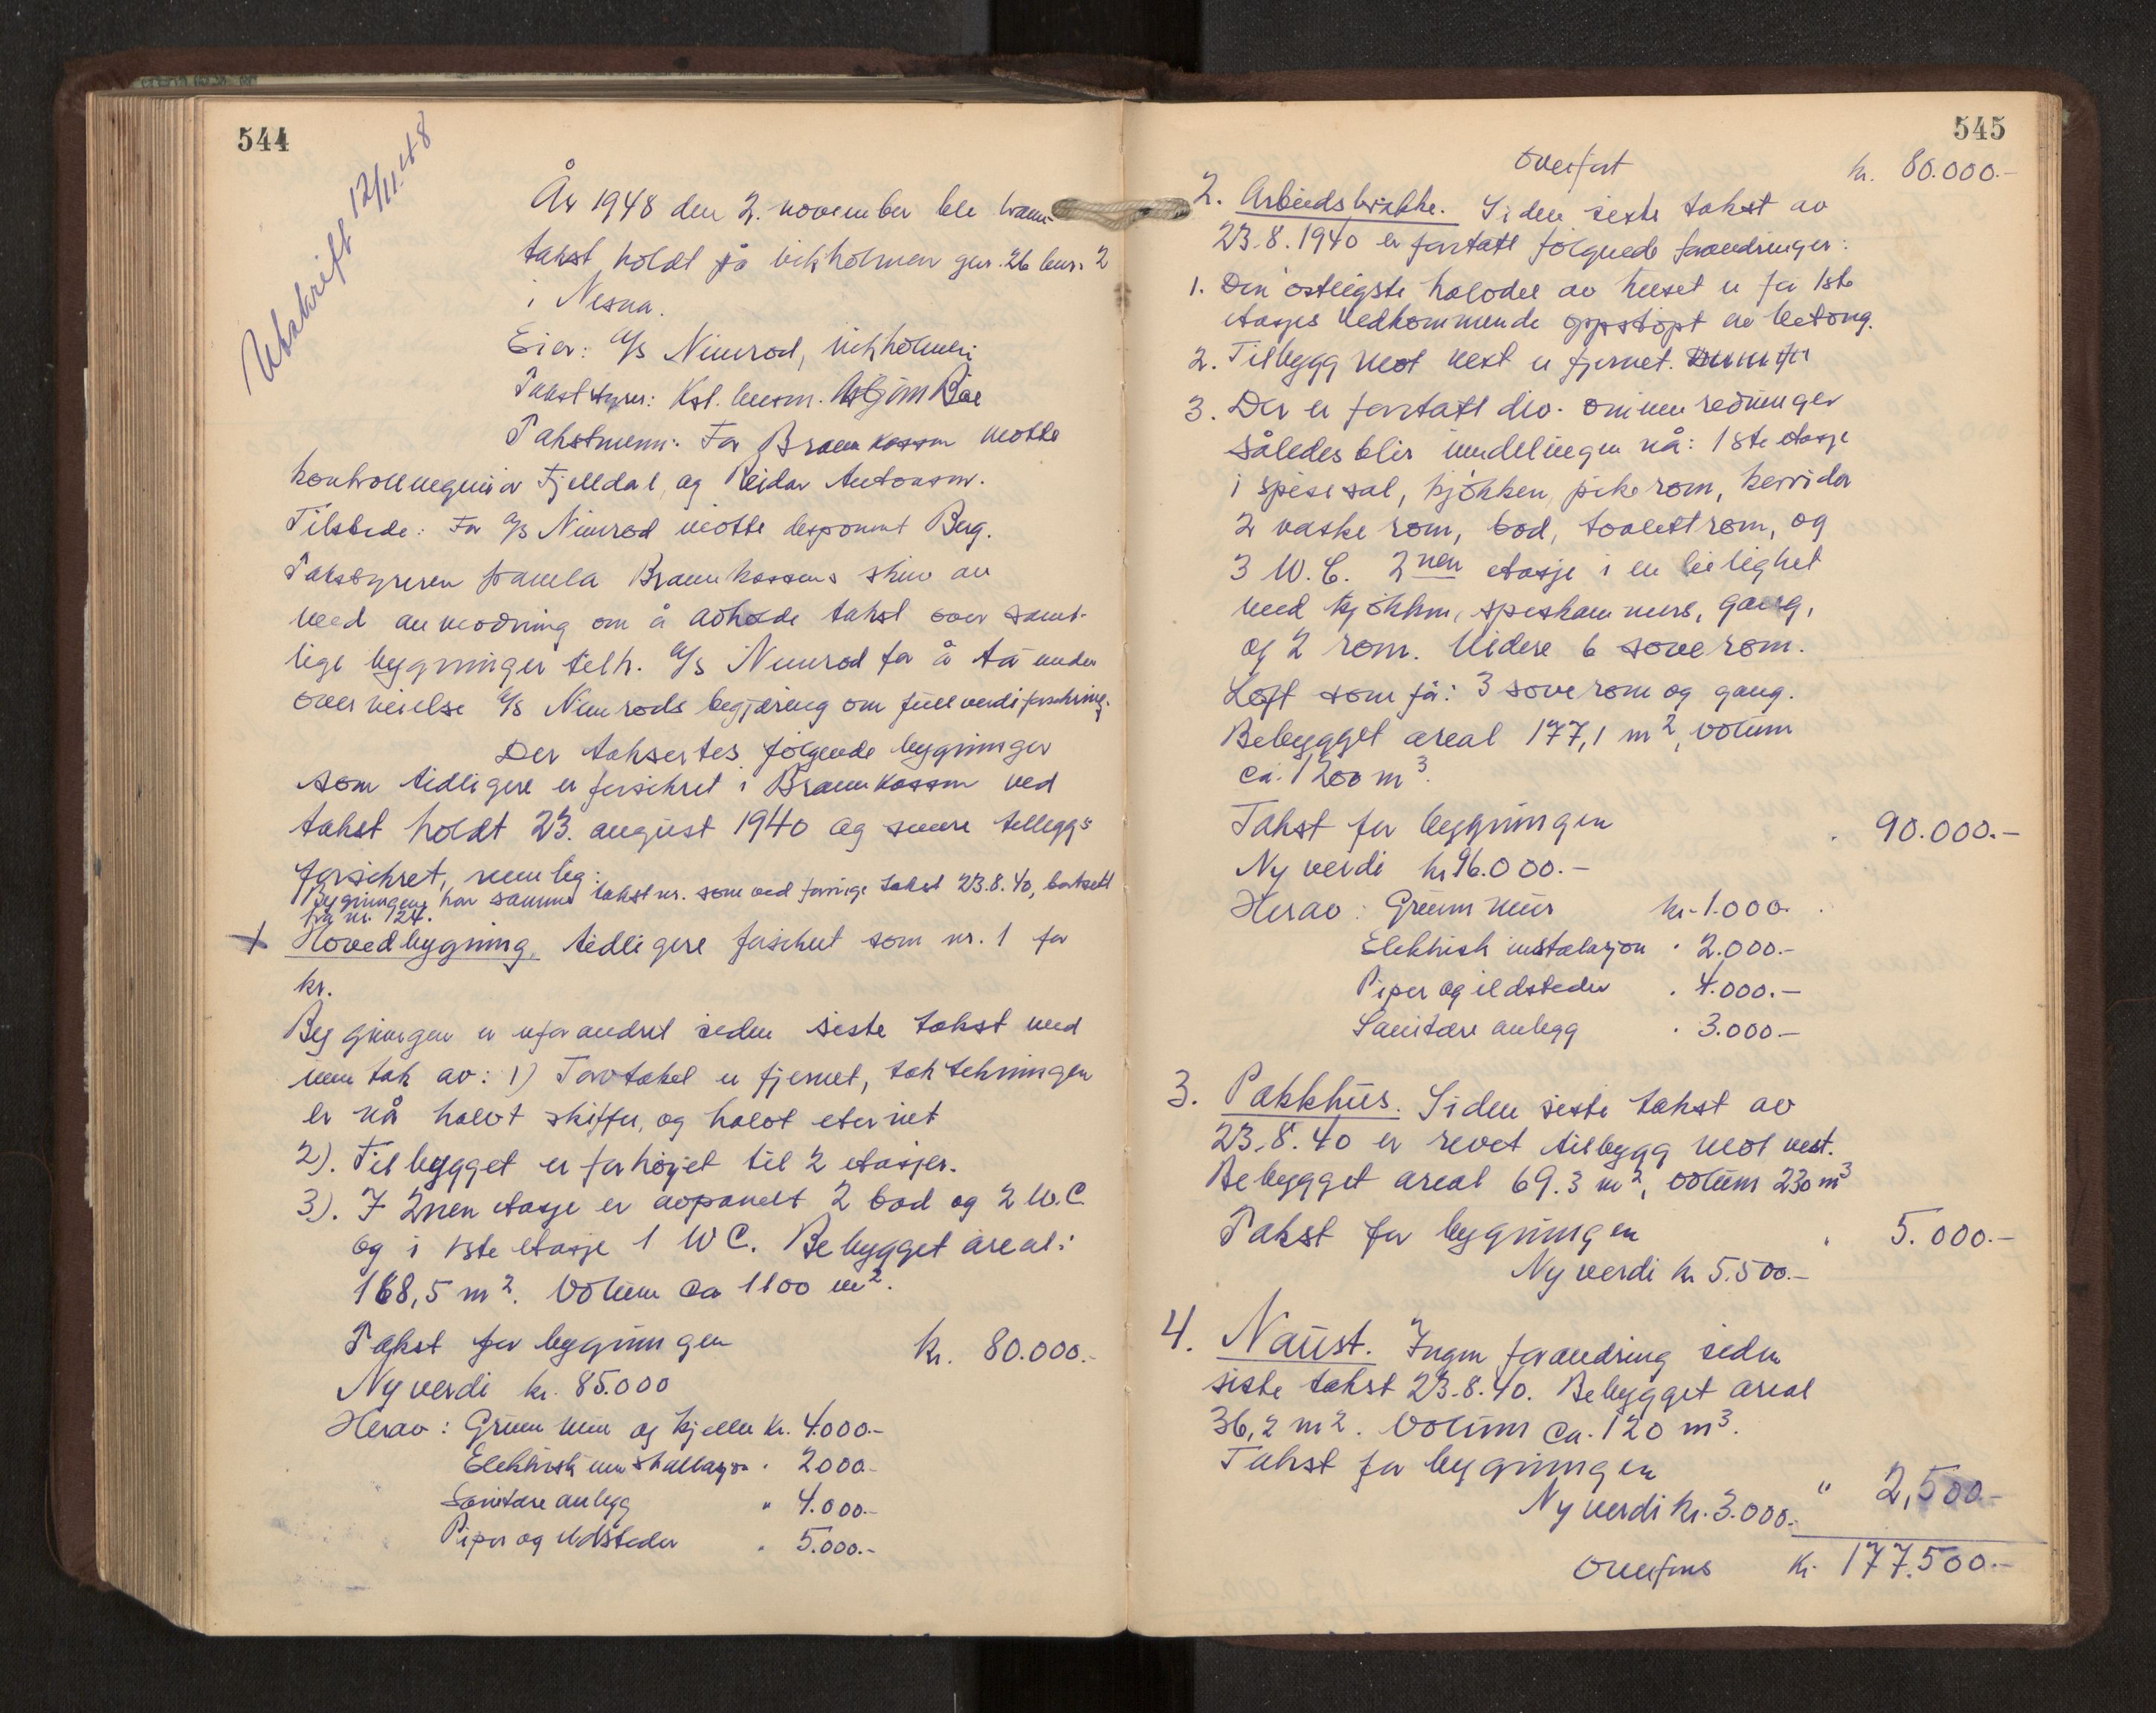 544
Utskrift 12/11.48
År 1948 den 2. november ble brann-
takst holdt på Vikholmen gnr. 26 bnr. 2
i Nesna.
Eier: A/s Nimrod, Vikholmen
Takstbyrer: Kst. lensm. Asbjørn Bae
Takstmenn: For Brannkassen møtte
kontrollingeniør Fjelldal, og Reidar Antonsen.
Tilstede: For A/s Nimrod møtte disponent Berg.
Takstbyreren framla Brannkassens skriv av
med anmodning om å avholde takst over samt-
lige bygninger tilh. A/s Nimrod for å ta under
overveielse A/s Nimrods begjæring om fullverdiforsikring.
Der taksertes følgende bygninger
som tidligere er forsikret i Brannkassen ved
takst holdt 23. august 1940 og senere tilleggs
forsikret, nemlig:
Bygningene har samme takstnr. som ved forrige takst 23.8.40, bortsett
fra nr. 124.
1 Hovedbygning, tidligere forsikret som nr. 1 for
kr.
Bygningen er uforandret siden siste takst med
unntak av: 1) Torvtaket er fjernet, taktekningen
er nå halvt skiffer, og halvt eternit
2). Tilbygget er forhøyet til 2 etasjer.
3). I 2nen etasje er avpanelt 2 bod og 2 W.C
og i 1ste etasje 1 WC. Bebygget areal:
168,5 m². Volum ca 1100 m².
Takst for bygningen kr. 80.000.-
Ny verdi kr. 85.000
Herav: Grunnmur og kjeller kr. 4.000.-
Elektrisk innstallasjon . 2000.-
Sanitære anlegg " 4.000.-
Piper og ildsteder . 5.000.-
545
Overført kr. 80.000.-
2. Arbeidsbrakke. Siden siste takst av
23.8.1940 er foretatt følgende forandringer:
1. Den østligste halvdel av huset er for 1ste
etasjes vedkommende oppstøpt av betong.
2. Tilbygg mot vest er fjernet.
3. Der er foretatt div. ominnredninger
således blir inndelingen nå: 1ste etasje
i spisesal, kjøkken, pikerom, korridor
2 vaskerom, bod, toalettrom, og
3 W.C. 2nen etasje i en leilighet
med kjøkken, spiskammers, gang,
og 2 rom. Videre 6 soverom.
Loft som før: 3 soverom og gang.
Bebygget areal 177,1 m², volum
ca. 1200 m³.
Takst for bygningen . 90.000.-
Ny verdi kr 96.000.-
Herav: Grunnmur kr. 1.000.
Elektrisk installasjon . 2.000.-
Piper og ildsteder . 4.000.-
Sanitære anlegg . 3.000.-
3. Pakkhus. Siden siste takst av
23.8.40 er revet tilbygg mot vest.
Bebygget areal 69.3 m², volum 230 m³
Takst for bygningen . 5.000.-
Ny verdi kr 5.500.-
4. Naust. Ingen forandring siden
siste takst 23.8.40. Bebygget areal
36,2 m². Volum ca. 120 m³.
Takst for bygningen " 2,500.-
Ny verdi kr. 3.000.-
Overføres kr. 177.500.-